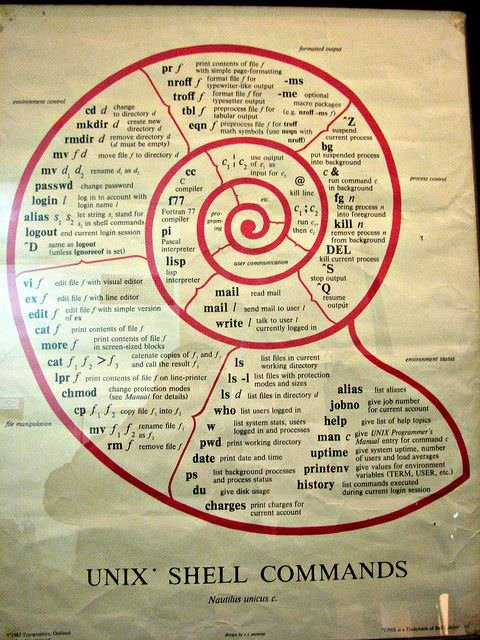 formatted output
pr f print contents of file f
with simple page-formatting
nroff f format file f for
typewriter-like output
troff f format file f for
typesetter output
tbl f preprocess file f for
tabular output
eqn f preprocess file f for troff
math symbols (use neqn with
nroff)
-ms
-me optional
macro packages
(e.g. nroff -ms f)
environment control
cd d change
to directory d
mkdir d create new
directory d
rmdir d remove directory d
(d must be empty)
mv f d move file f to directory d
mv d₁ d₂ rename d₁ as d₂
passwd change password
login l log in to account with
login name l
alias s₁ s₂ let string s₁ stand for
s₂ in shell commands
logout end current login session
^D same as logout
(unless ignoreeof is set)
^Z
suspend
current process
bg
put suspended process
into background
c &
run command c
in background
fg n
bring process n
into foreground
kill n
remove process n
from background
DEL
kill current process
^S
stop output
^Q
resume
output
process control
cc
C
compiler
f77
Fortran 77
compiler
pi
Pascal
interpreter
lisp
lisp
interpreter
programming
c₁ | c₂ use output
of c₁ as
input for c₂
@
kill line
c₁ ; c₂
run c₁,
then c₂
etc.
user communication
mail read mail
mail l send mail to user l
write l talk to user l
currently logged in
vi f edit file f with visual editor
ex f edit file f with line editor
edit f edit file f with simple version
of ex
cat f print contents of file f
more f print contents of file f
in screen-sized blocks
cat f₁ f₂ > f₃ catenate copies of f₁ and f₂
and call the result f₃
lpr f print contents of file f on line-printer
chmod change protection modes
(see Manual for details)
cp f₁ f₂ copy file f₁ into f₂
mv f₁ f₂ rename file f₁
as f₂
rm f remove file f
file manipulation
environment status
ls list files in current
working directory
ls -l list files with protection
modes and sizes
ls d list files in directory d
who list users logged in
w list system stats, users
logged in and processes
pwd print working directory
date print date and time
ps list background processes
and process status
du give disk usage
charges print charges for
current account
alias list aliases
jobno give job number
for current account
help give list of help topics
man c give UNIX Programmer's
Manual entry for command c
uptime give system uptime, number
of users and load averages
printenv give values for environment
variables (TERM, USER, etc.)
history list commands executed
during current login session
UNIX* SHELL COMMANDS
Nautilus unicus c.
design by
*UNIX is a Trademark of Bell